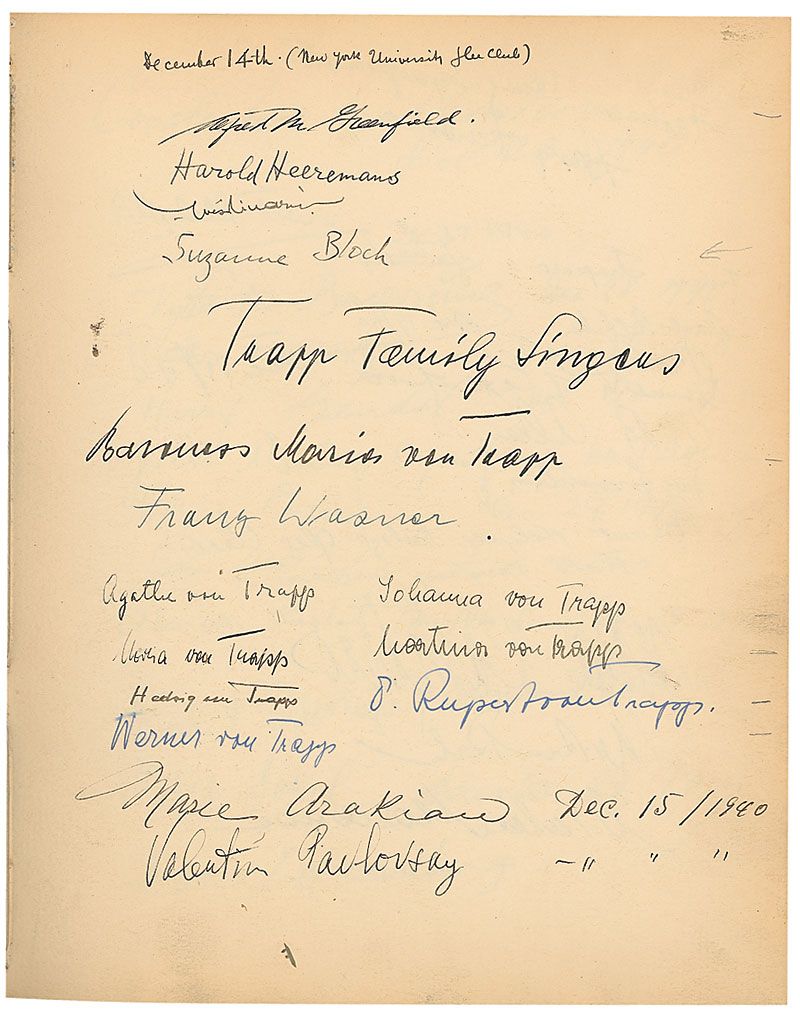 December 14-th. (New York University Glee Club)
Alfred M. Greenfield.
Harold Heeremans
Suzanne Bloch
Trapp Family Singers
Baroness Maria von Trapp
Franz Wasner
Agathe von Trapp Johanna von Trapp
Maria von Trapp Martina von Trapp
Hedwig von Trapp Rupert von Trapp.
Werner von Trapp
Marie Arakian Dec. 15/1940
Valentin Pavlovsky —〃 〃 〃